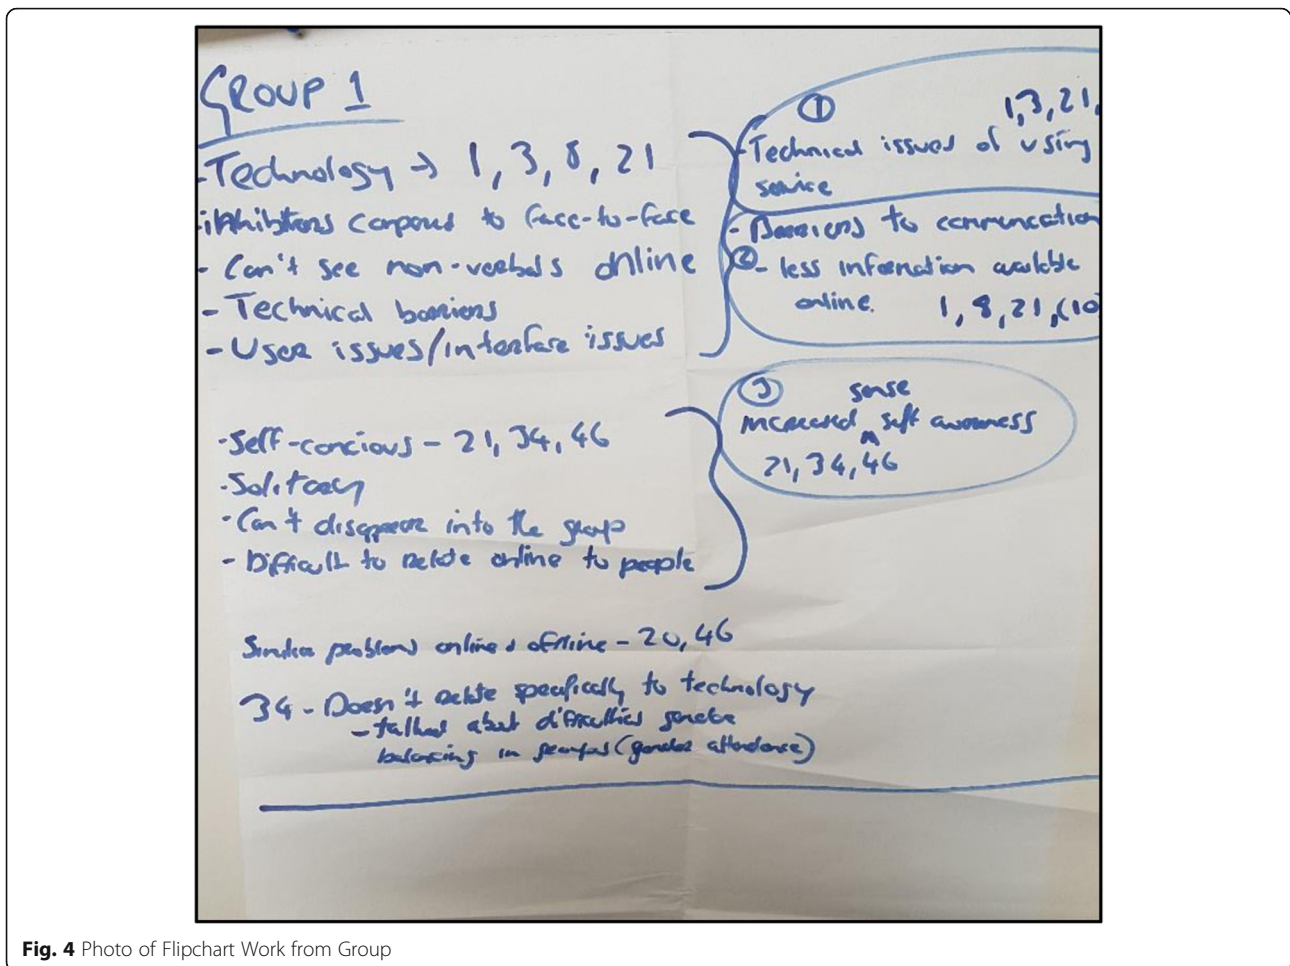 GROUP 1
- Technology → 1, 3, 8, 21
- inhibitions compared to face-to-face
- Can't see non-verbals online
- Technical barriers
- User issues/interface issues
① 1,3,21,
- Technical issues of using
service
- Barriers to communication
② - less information available
online. 1, 8, 21, (10
- Self-concious - 21, 34, 46
- Solitary
- Can't disappear into the group
- Difficult to relate online to people
③ sense
increased ^ self awareness
21, 34, 46
Similar problems online & offline - 20, 46
34 - Doesn't relate specifically to technology
- talked about difficulties gender
balancing in (gender attendance)
Fig. 4 Photo of Flipchart Work from Group